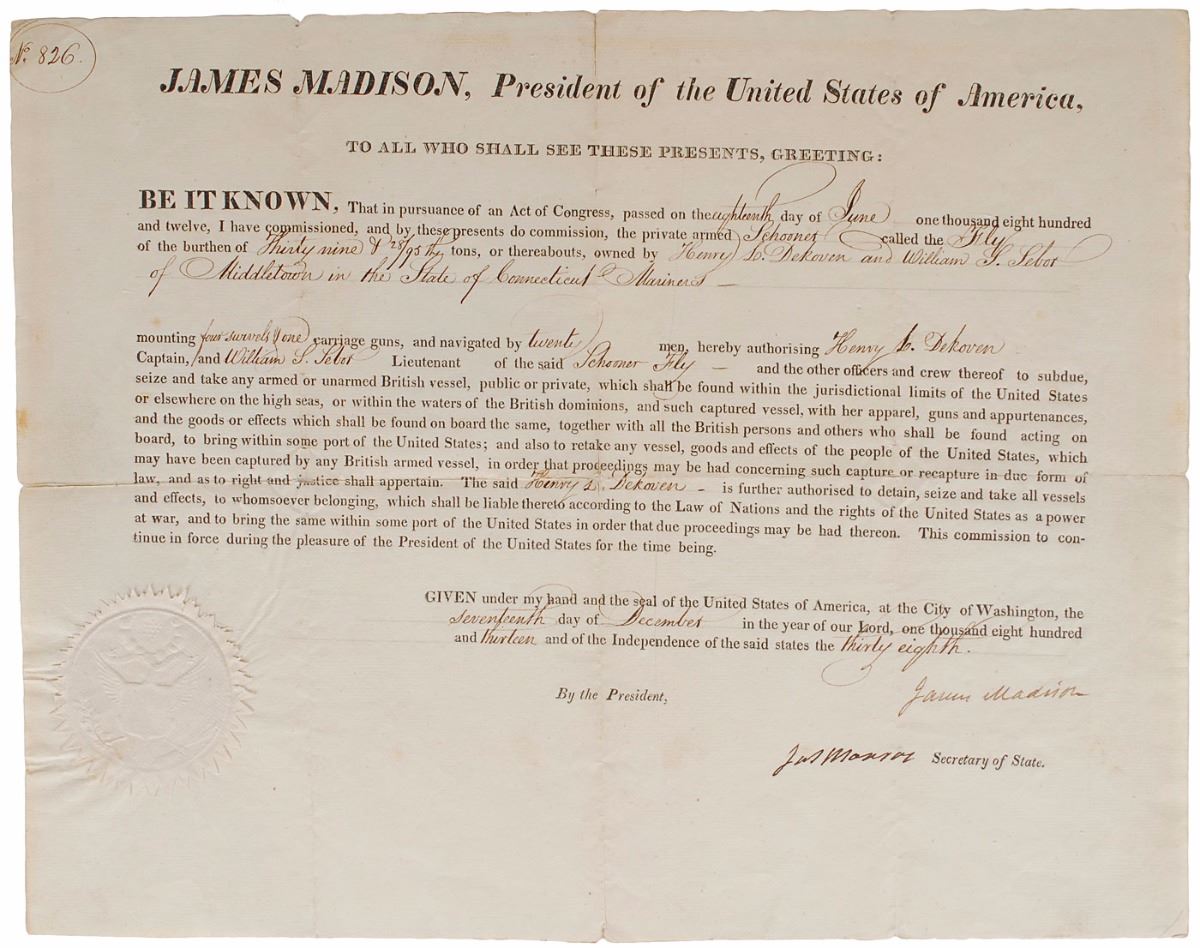 No. 826.
JAMES MADISON, President of the United States of America,
TO ALL WHO SHALL SEE THESE PRESENTS, GREETING:
BE IT KNOWN, That in pursuance of an Act of Congress, passed on the eighteenth day of June one thousand eight hundred
and twelve, I have commissioned, and by these presents do commission, the private armed Schooner called the Fly
of the burthen of Thirty nine & 28/95 ths tons, or thereabouts, owned by Henry L. DeKoven and William S. Sebor
of Middletown in the State of Connecticut Mariners
mounting four swivels & one carriage guns, and navigated by twente men, hereby authorising Henry L. DeKoven
Captain, and William S. Sebor Lieutenant of the said Schooner Fly and the other officers and crew thereof to subdue,
seize and take any armed or unarmed British vessel, public or private, which shall be found within the jurisdictional limits of the United States
or elsewhere on the high seas, or within the waters of the British dominions, and such captured vessel, with her apparel, guns and appurtenances,
and the goods or effects which shall be found on board the same, together with all the British persons and others who shall be found acting on
board, to bring within some port of the United States; and also to retake any vessel, goods and effects of the people of the United States, which
may have been captured by any British armed vessel, in order that proceedings may be had concerning such capture or recapture in due form of
law, and as to right and justice shall appertain. The said Henry L. DeKoven is further authorised to detain, seize and take all vessels
and effects, to whomsoever belonging, which shall be liable thereto according to the Law of Nations and the rights of the United States as a power
at war, and to bring the same within some port of the United States in order that due proceedings may be had thereon. This commission to con-
tinue in force during the pleasure of the President of the United States for the time being.
GIVEN under my hand and the seal of the United States of America, at the City of Washington, the
seventeenth day of December in the year of our Lord, one thousand eight hundred
and thirteen and of the Independence of the said states the thirty eighth.
By the President,
James Madison
Jas Monroe Secretary of State.